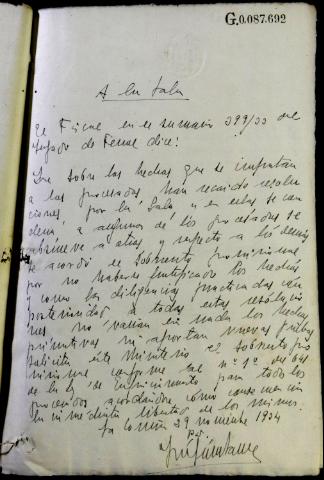 G.0.087.692
A la Sala
El Fiscal en el sumario 399/33 del
Juzgado de Ferrol dice:
Que sobre los hechos que se imputan
a los procesados han recaido resolu
ciones, por la Sala y en ellas se con
dena a algunos de los procesados se
absuelve a otros y respecto a los demás
se acordó el sobreseimto provisional
por no haberse justificado los hechos
y como las diligencias practicadas con
posterioridad a todas estas resolucio
nes no varian en nada los hechos
primitivos ni aportan nuevas pruebas
solicita este Ministerio el sobreseimto pro
conforme al nº 1º del 641
de la L. de Enjuiciamiento para todos los
procesados acordandose como consecuencia
la inmediata libertad de los mismos.
La Coruña 29 noviembre 1934